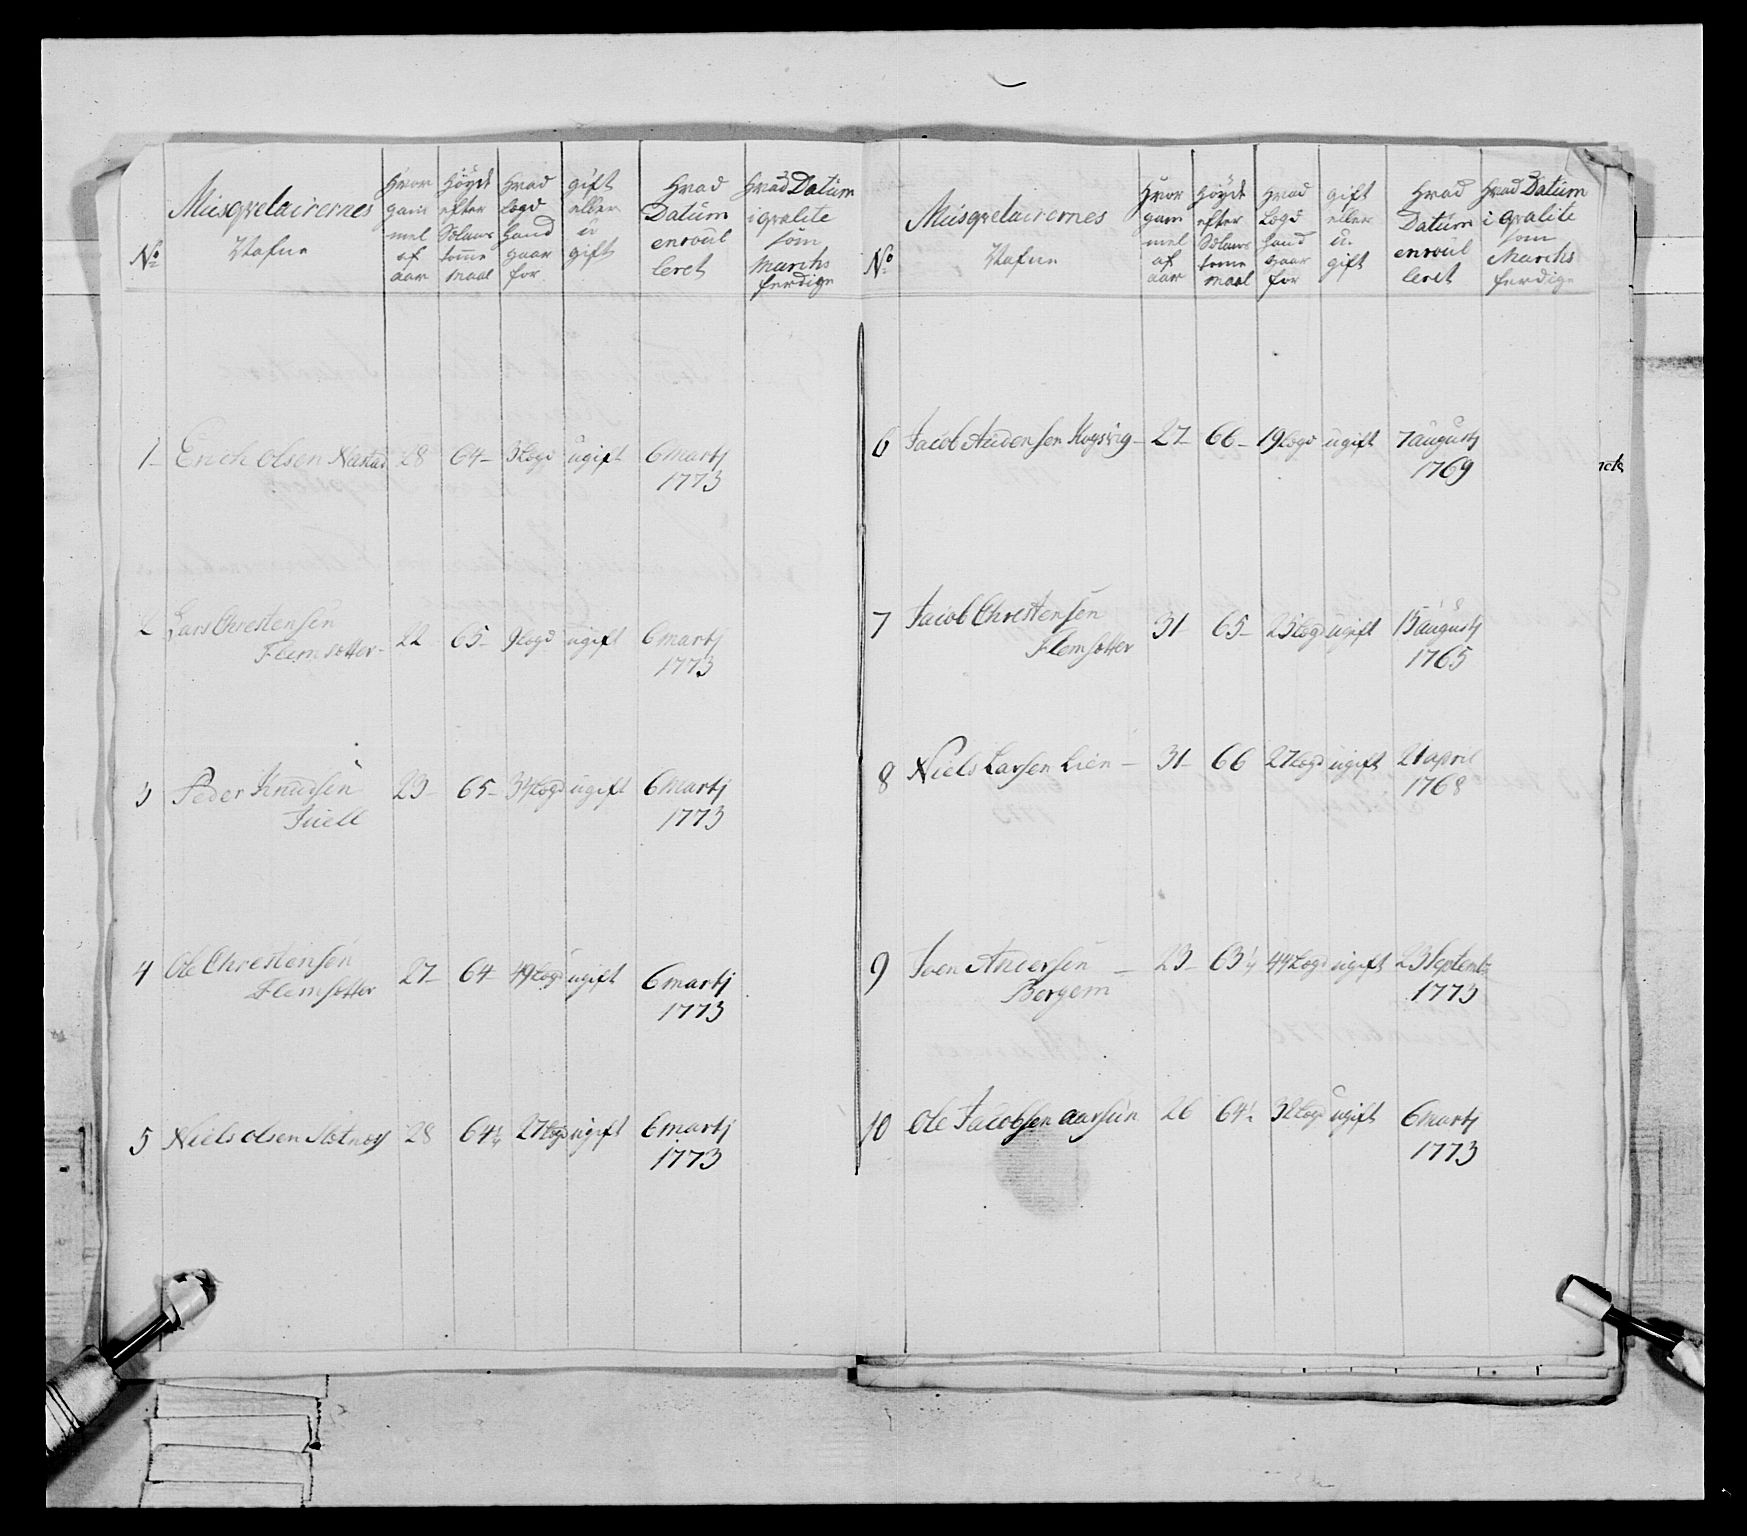 No
Musqvetairernes
Nafne
Hvor
gam
mel
af
aar
Høyde
efter
Sølans
somme
maal
Hvad
Lægd
Hand
gaar
for
gift
eller
u
gift
Hvad
Datum
enroul
leret
Hvad Datum
i qvalite
som
Marchs
ferdige
1 Erich Olsen Nästad 28 64 3 Lægd ugift 6 martj
1773
2 Lars Chrestensen
Flemsætter 22 65 9 Lægd ugift 6 martj
1773
3 Peder Knudsen
Juell 23 65 34 Lægd ugift 6 martj
1773
4 Ole Chrestensen
Flemsætter 27 64 49 Lægd ugift 6 martj
1773
5 Niels Olsen Slotnes 28 64 27 Lægd ugift 6 martj
1773
No
Musqvetairernes
Nafne
Hvor
gam
mel
af
aar
Høyde
efter
Sølans
somme
maal
Hvad
Lægd
Hand
gaar
for
gift
eller
u.
gift
Hvad
Datum
enroul
leret
Hvad Datum
i qvalite
som
Marchs
ferdige
6 Jacob Andersen Kogsvig 27 66 19 Lægd ugift 7 augustj
1769
7 Jacob Chrestensen
Flemsætter 31 65 23 Lægd ugift 15 augustj
1765
8 Niels Larsen Lien 31 66 27 Lægd ugift 21 april
1768
9 Iven Andersen
Bergem 23 63 44 Lægd ugift 23 Septemb
1773
10 Ole Jacobsen Aarsün 26 64 32 Lægd ugift 6 martj
1773